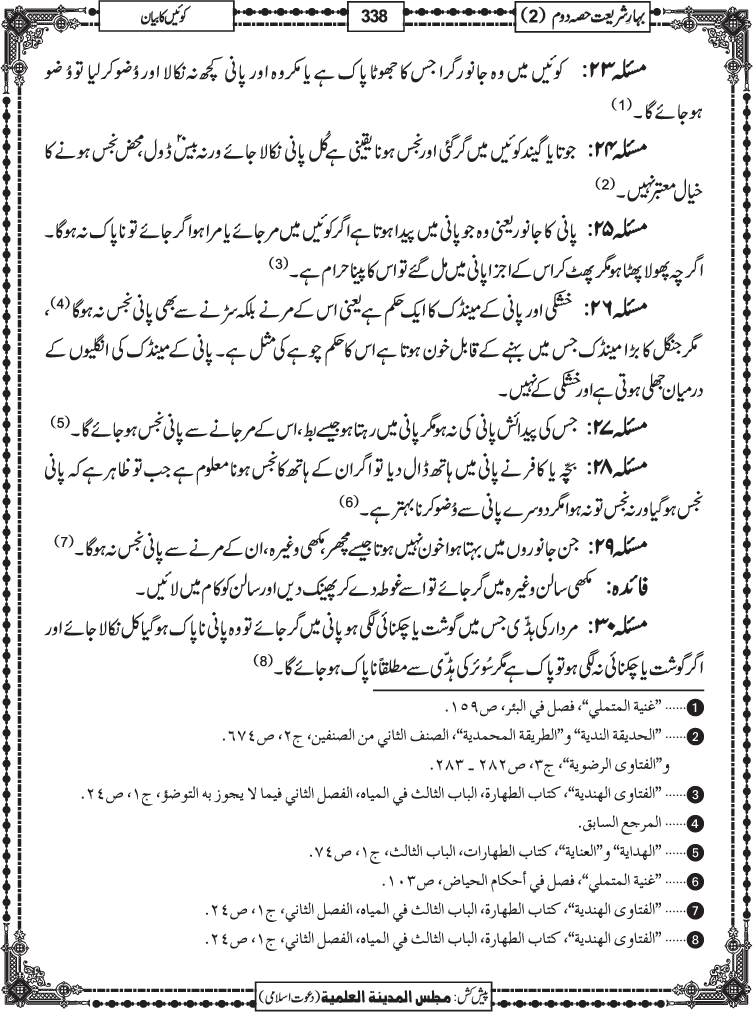 بہارِ شریعت حصہ دوم (2)
338
کوئیں کا بیان
مسئلہ ۲۳: کوئیں میں وہ جانور گرا جس کا جھوٹا پاک ہے یا مکروہ اور پانی کچھ نہ نکالا اور وُضو کر لیا تو وُضو
ہو جائے گا۔ (1)
مسئلہ ۲۴: جوتا یا گیند کوئیں میں گر گئی اور نجس ہونا یقینی ہے کُل پانی نکالا جائے ورنہ بیس۲۰ ڈول، محض نجس ہونے کا
خیال معتبر نہیں۔ (2)
مسئلہ ۲۵: پانی کا جانور یعنی وہ جو پانی میں پیدا ہوتا ہے اگر کوئیں میں مر جائے یا مرا ہوا گر جائے تو ناپاک نہ ہوگا۔
اگرچہ پھولا پھٹا ہو مگر پھٹ کر اس کے اجزا پانی میں مل گئے تو اس کا پینا حرام ہے۔ (3)
مسئلہ ۲۶: خشکی اور پانی کے مینڈک کا ایک حکم ہے یعنی اس کے مرنے بلکہ سڑنے سے بھی پانی نجس نہ ہوگا (4)،
مگر جنگل کا بڑا مینڈک جس میں بہنے کے قابل خون ہوتا ہے اس کا حکم چوہے کی مثل ہے۔ پانی کے مینڈک کی انگلیوں کے
درمیان جھلی ہوتی ہے اور خشکی کے نہیں۔
مسئلہ ۲۷: جس کی پیدائش پانی کی نہ ہو مگر پانی میں رہتا ہو جیسے بط، اس کے مر جانے سے پانی نجس ہو جائے گا۔ (5)
مسئلہ ۲۸: بچّہ یا کافر نے پانی میں ہاتھ ڈال دیا تو اگر ان کے ہاتھ کا نجس ہونا معلوم ہے جب تو ظاہر ہے کہ پانی
نجس ہو گیا ورنہ نجس تو نہ ہوا مگر دوسرے پانی سے وُضو کرنا بہتر ہے۔ (6)
مسئلہ ۲۹: جن جانوروں میں بہتا ہوا خون نہیں ہوتا جیسے مچھر، مکھی وغیرہ، ان کے مرنے سے پانی نجس نہ ہوگا۔ (7)
فائدہ: مکھی سالن وغیرہ میں گر جائے تو اسے غوطہ دے کر پھینک دیں اور سالن کو کام میں لائیں۔
مسئلہ ۳۰: مردار کی ہڈّی جس میں گوشت یا چکنائی لگی ہو پانی میں گر جائے تو وہ پانی ناپاک ہو گیا کل نکالا جائے اور
اگر گوشت یا چکنائی نہ لگی ہو تو پاک ہے مگر سُوئر کی ہڈّی سے مطلقاً ناپاک ہو جائے گا۔ (8)
1 ...... "غنية المتملي"، فصل في البئر، ص١٥٩.
2 ...... "الحديقة الندية" و"الطريقة المحمدية"، الصنف الثاني من الصنفين، ج٢، ص٦٧٤.
و"الفتاوى الرضوية"، ج٣، ص٢٨٢ ـ ٢٨٣.
3 ...... "الفتاوى الهندية"، كتاب الطهارة، الباب الثالث في المياه، الفصل الثاني فيما لا يجوز به التوضؤ، ج١، ص٢٤.
4 ...... المرجع السابق.
5 ...... "الهداية" و"العناية"، كتاب الطهارات، الباب الثالث، ج١، ص٧٤.
6 ...... "غنية المتملي"، فصل في أحكام الحياض، ص١٠٣.
7 ...... "الفتاوى الهندية"، كتاب الطهارة، الباب الثالث في المياه، الفصل الثاني، ج١، ص٢٤.
8 ...... "الفتاوى الهندية"، كتاب الطهارة، الباب الثالث في المياه، الفصل الثاني، ج١، ص٢٤.
پیش کش: مجلس المدينة العلمية (دعوت اسلامی)